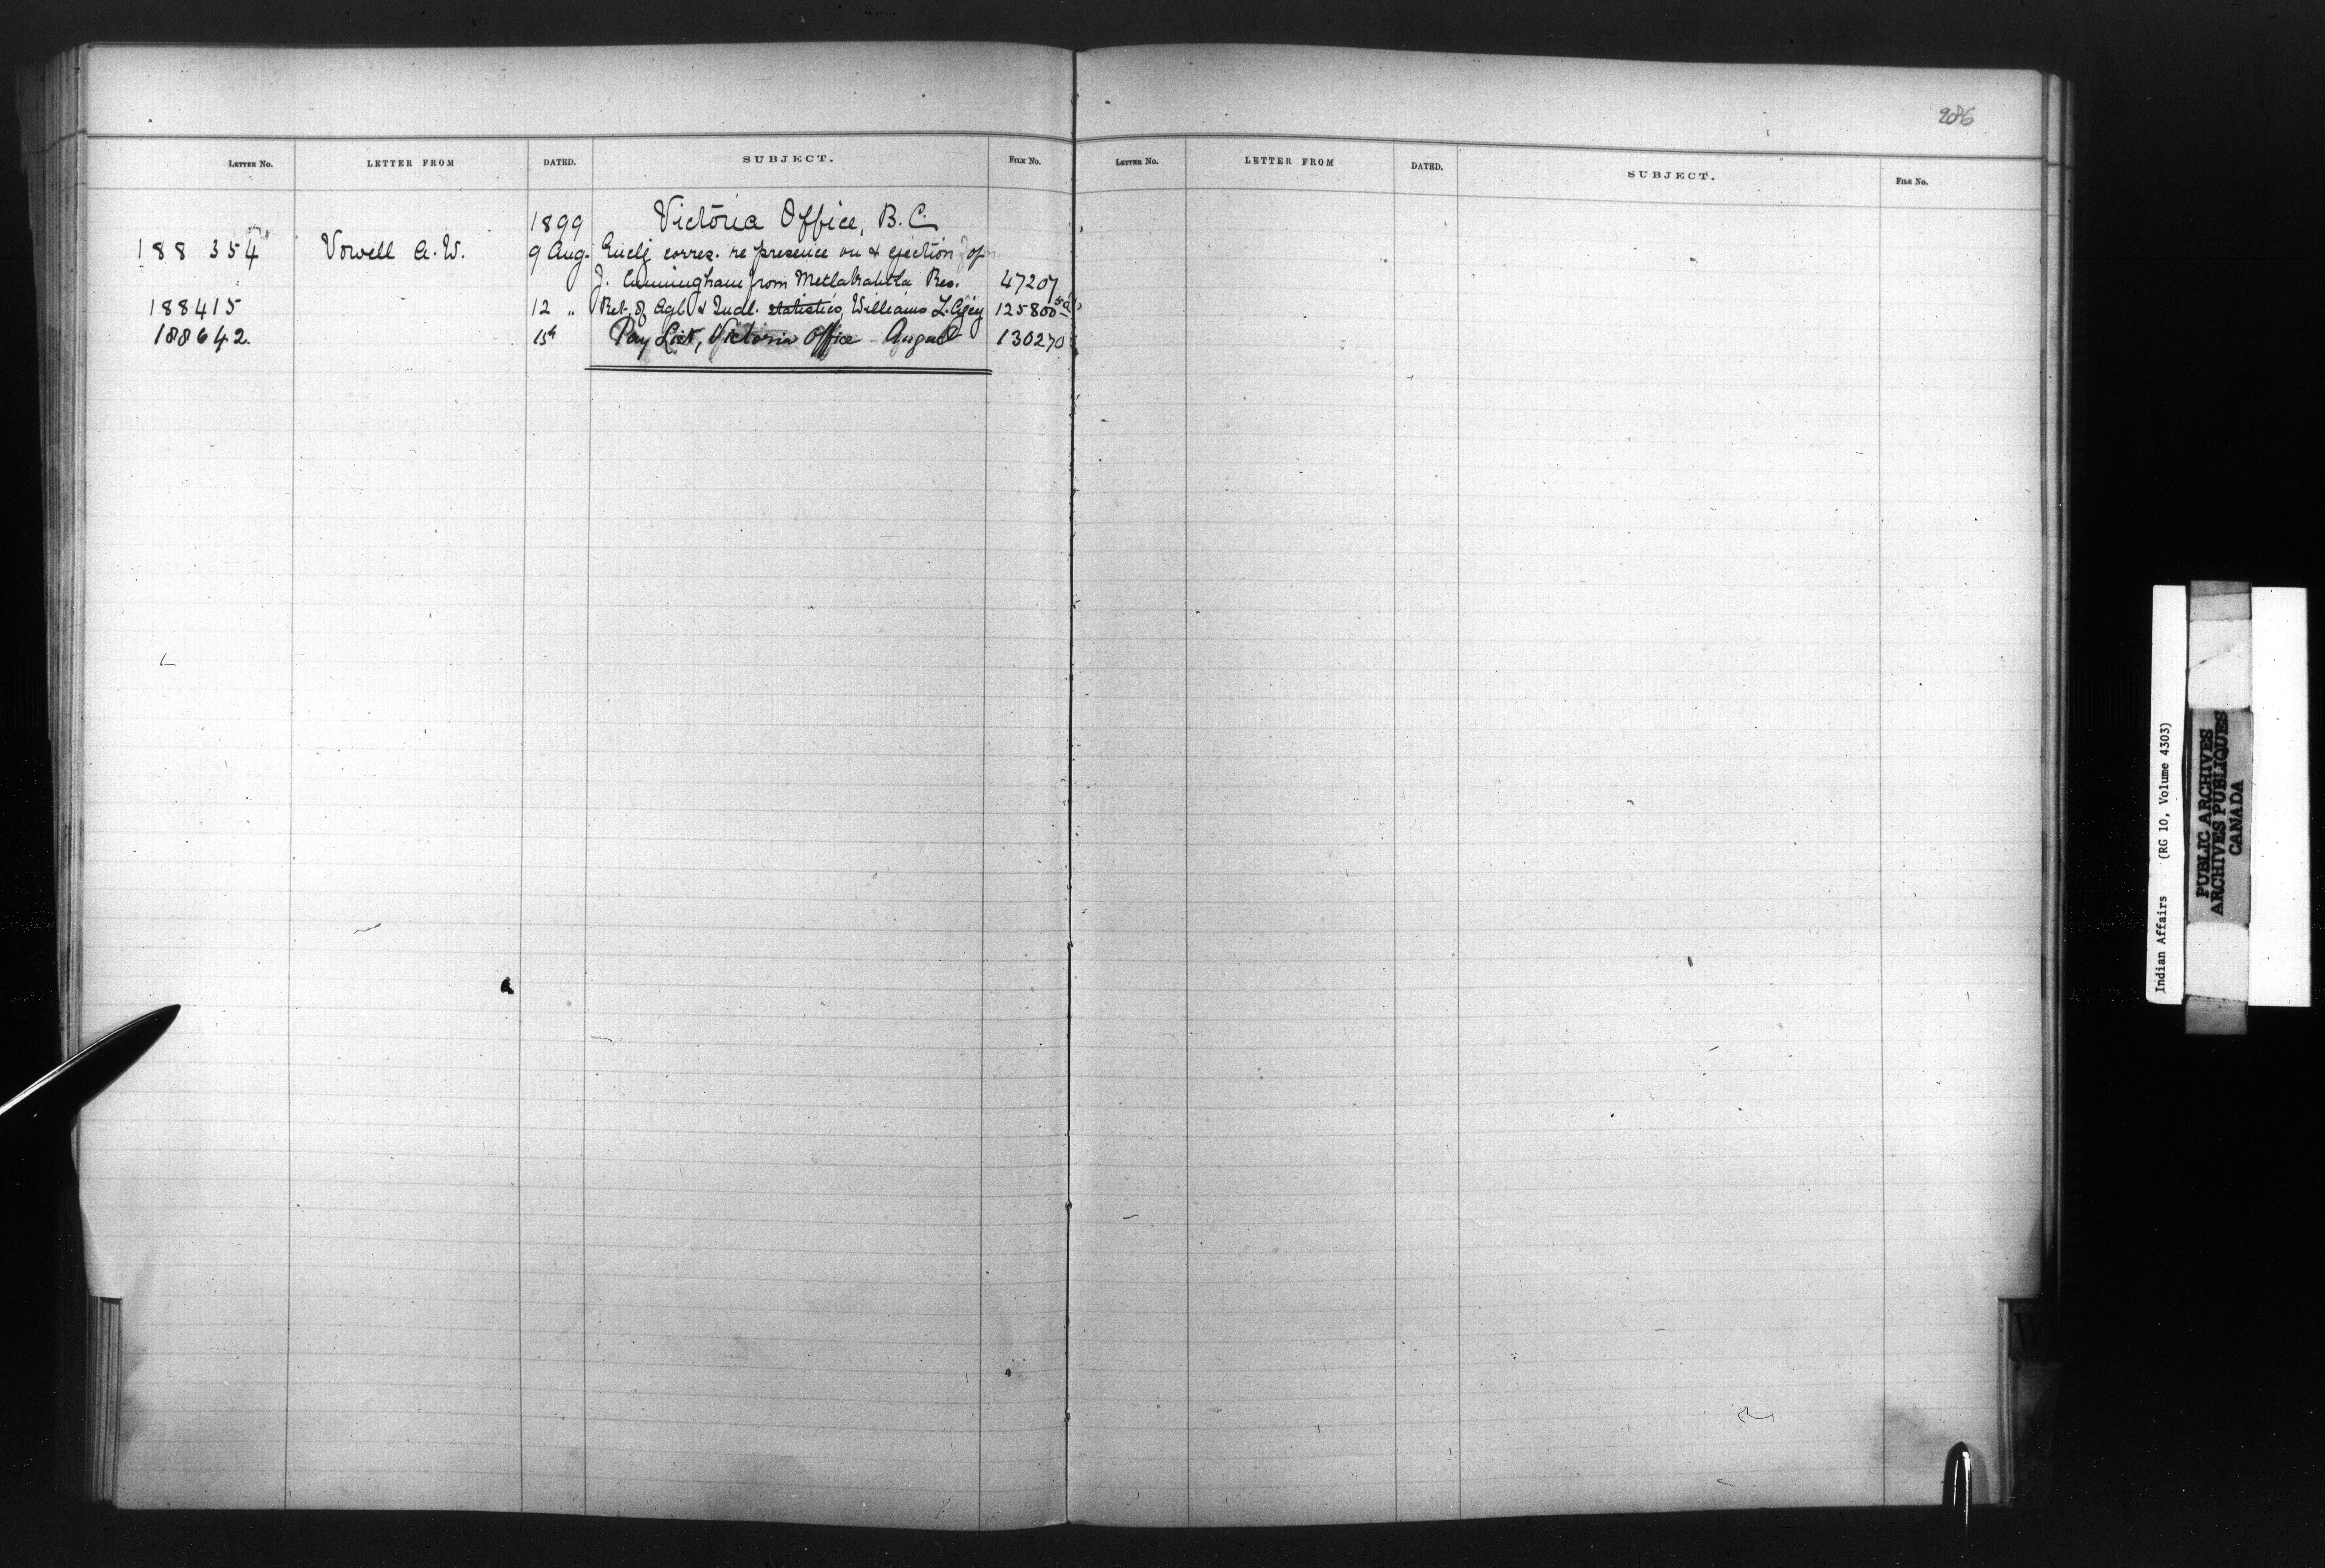 2086
LETTER NO. LETTER FROM DATED. SUBJECT. FILE NO.
1899 Victoria Office, B.C.
188 354 Vowell A. W. 9 Aug. Encl'g corres. re presence on & ejection of
J. Cunningham from Metlakahtla Res. 47207
188415 12 " Ret. of Agl. & Indl. statistics, Williams L. Agcy 125800
188642. 15th Pay List, Victoria Office August 130270
LETTER NO. LETTER FROM DATED. SUBJECT. FILE NO.
Indian Affairs (RG 10, Volume 4303)
PUBLIC ARCHIVES
ARCHIVES PUBLIQUES
CANADA